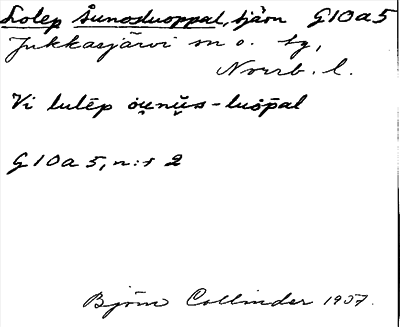 Lolep Åunosluoppal, tjärn G10a5
Jukkasjärvi sn o. tg,
Norrb. l.
Vi lulēp ou̯nu̯s-luōpal
G10a5, n:r 2
Björn Collinder 1957.